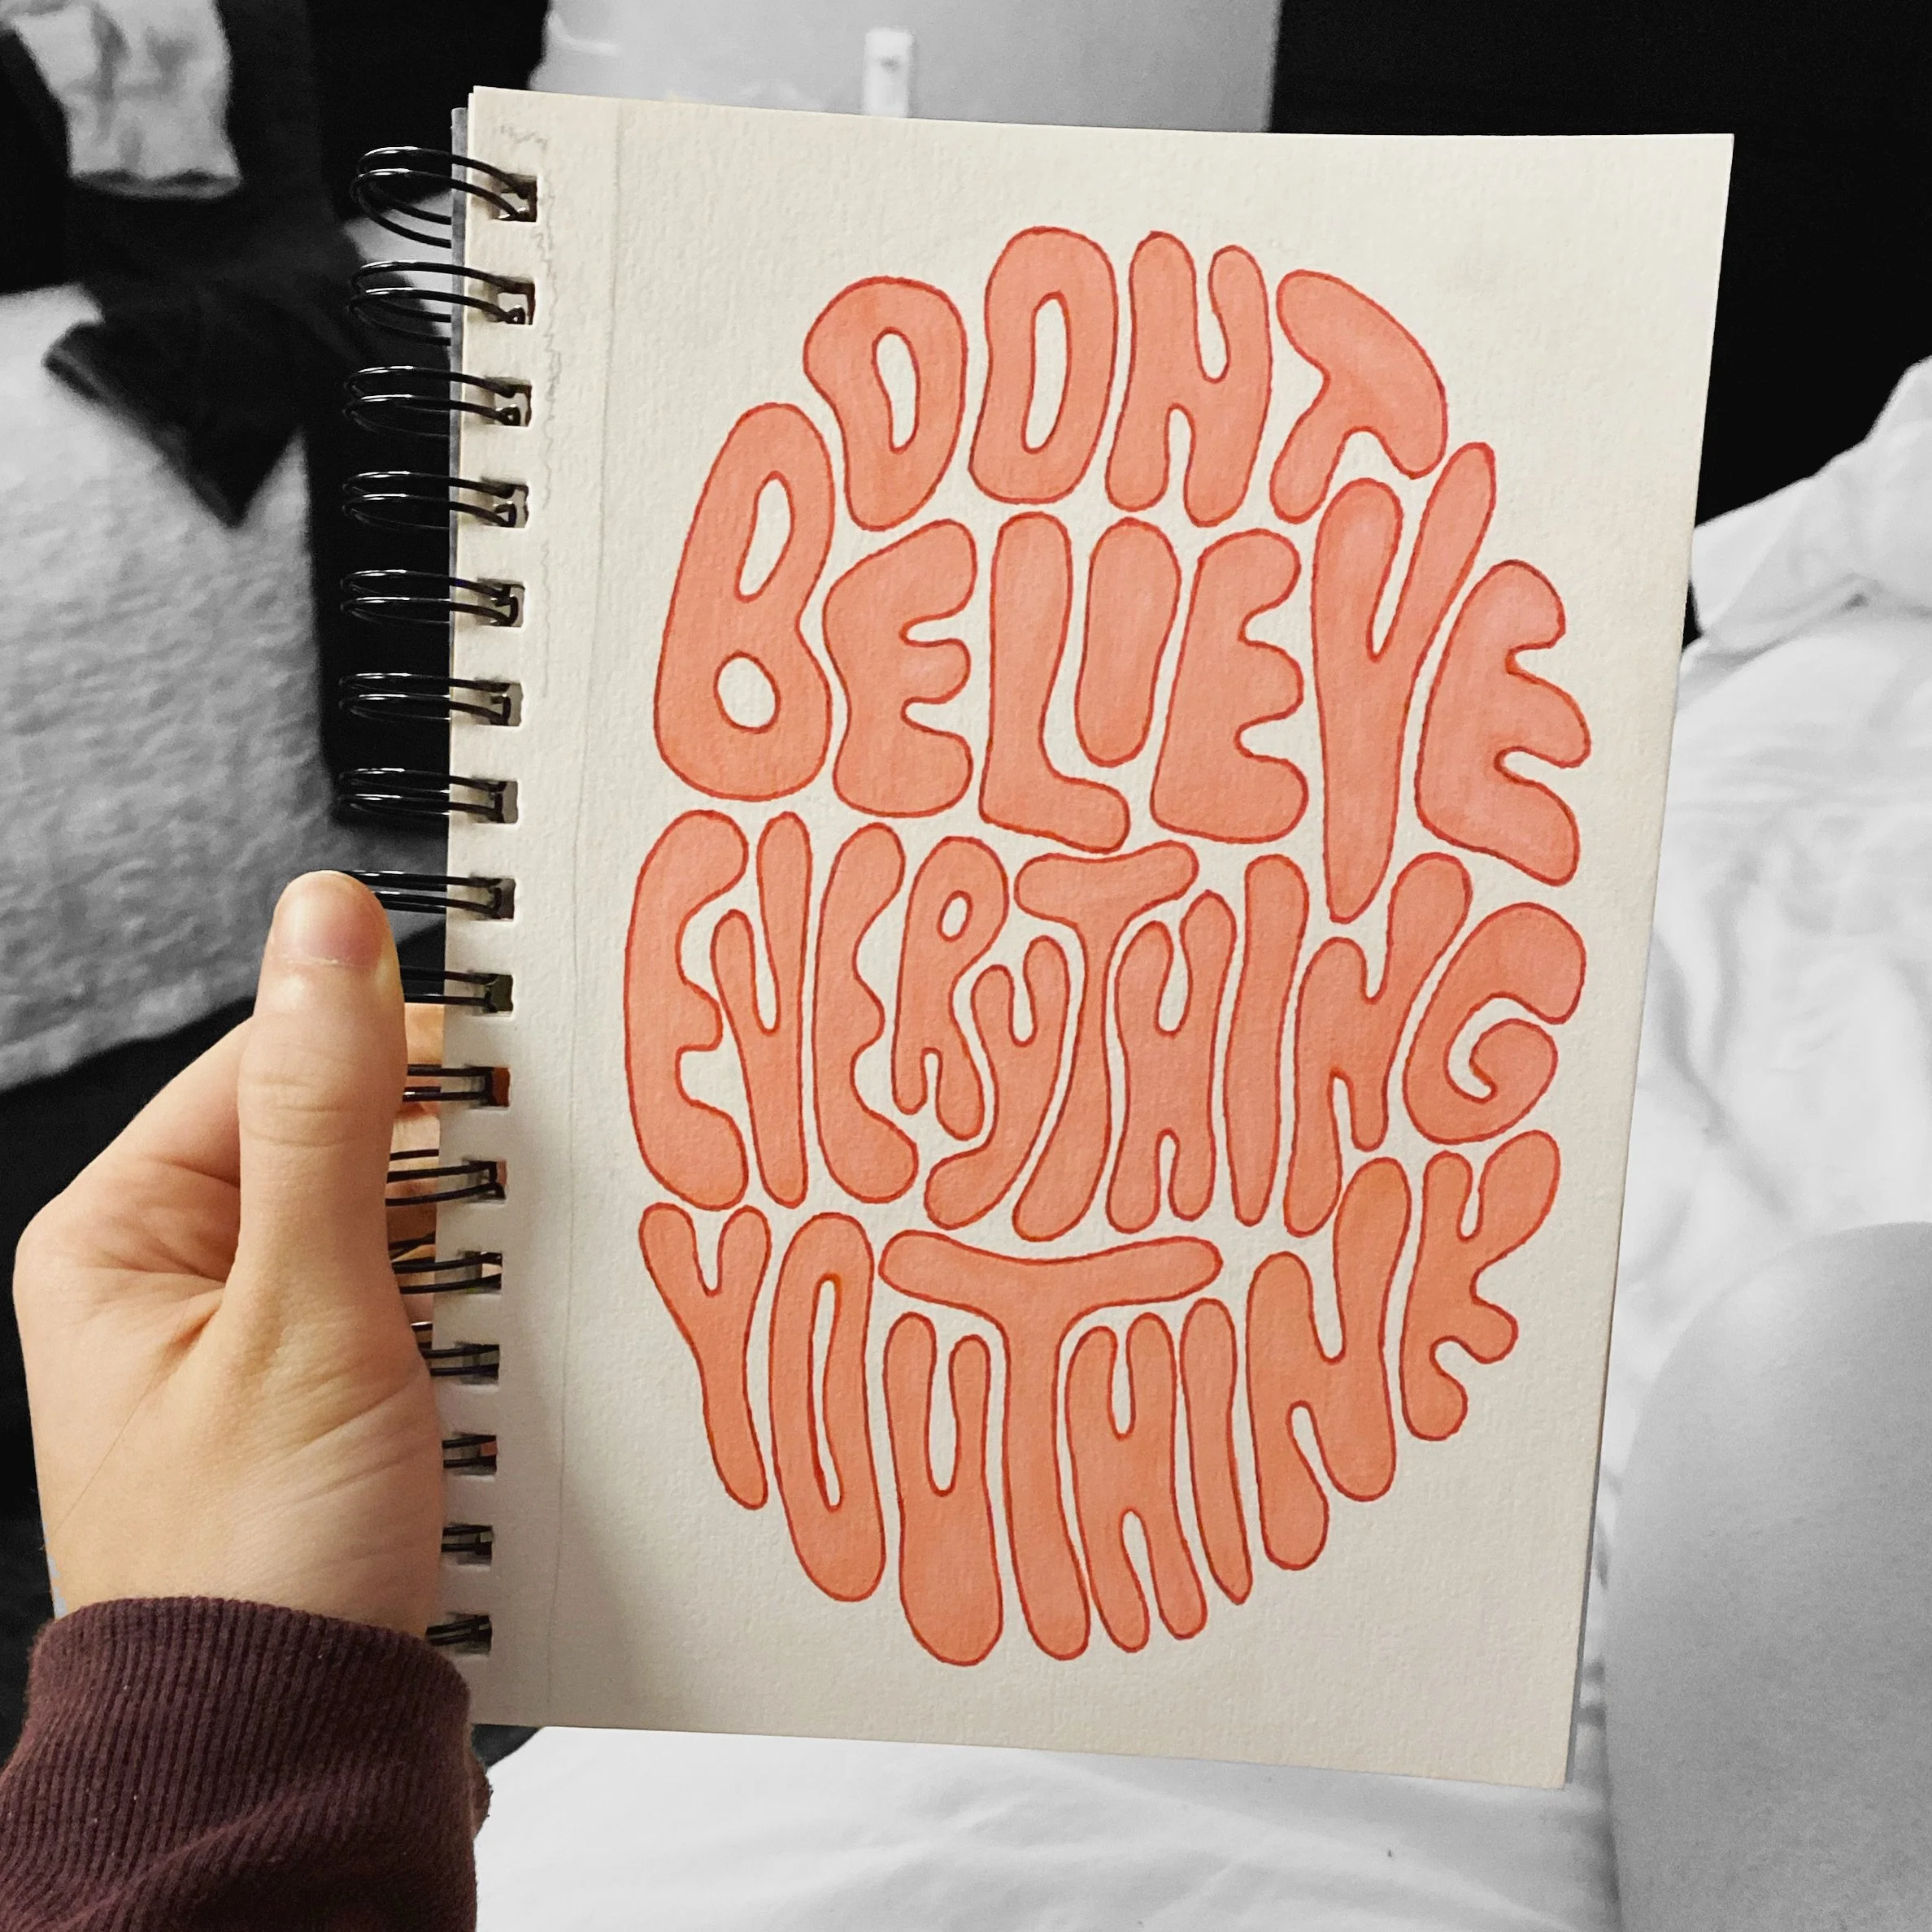 DONT
BELIEVE
EVERYTHING
YOU THINK